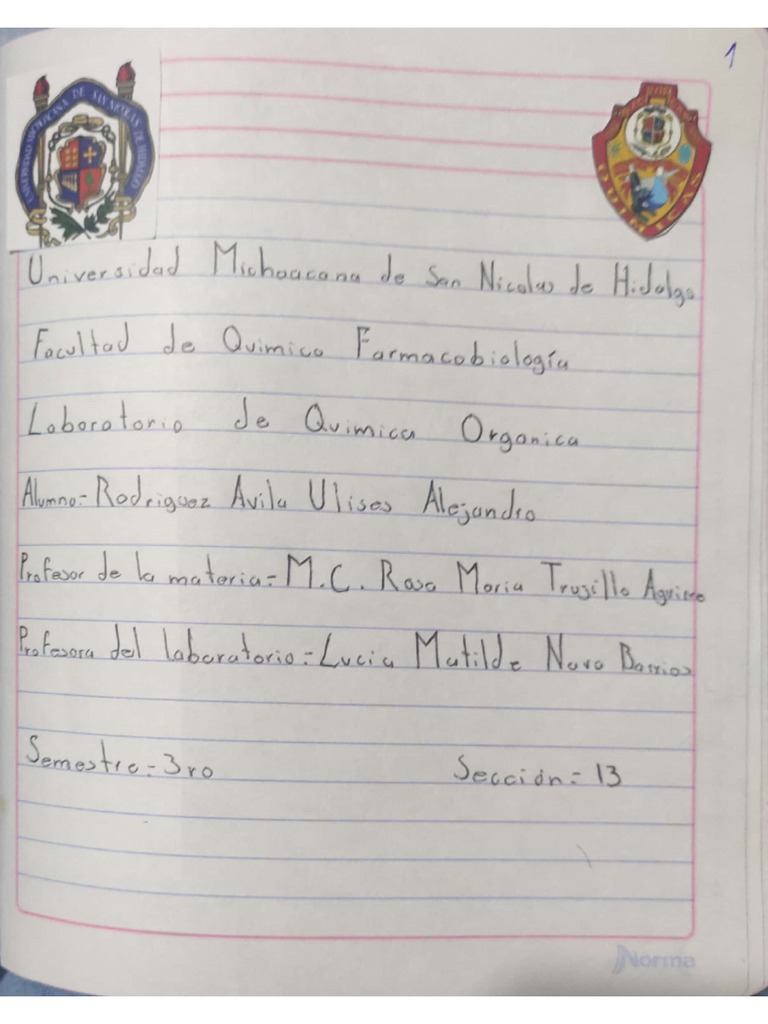 1
UNIVERSIDAD MICHOACANA DE SAN NICOLAS DE HIDALGO
QUIMICAS
Universidad Michoacana de San Nicolas de Hidalgo
Facultad de Quimico Farmacobiología
Laboratorio de Quimica Organica
Alumno:- Rodriguez Avila Ulises Alejandro
Profesor de la materia:- M.C. Rosa Maria Trujillo
Profesora del laboratorio:- Lucia Matilde Nava Barrios
Semestre:- 3ro Sección:- 13
Norma